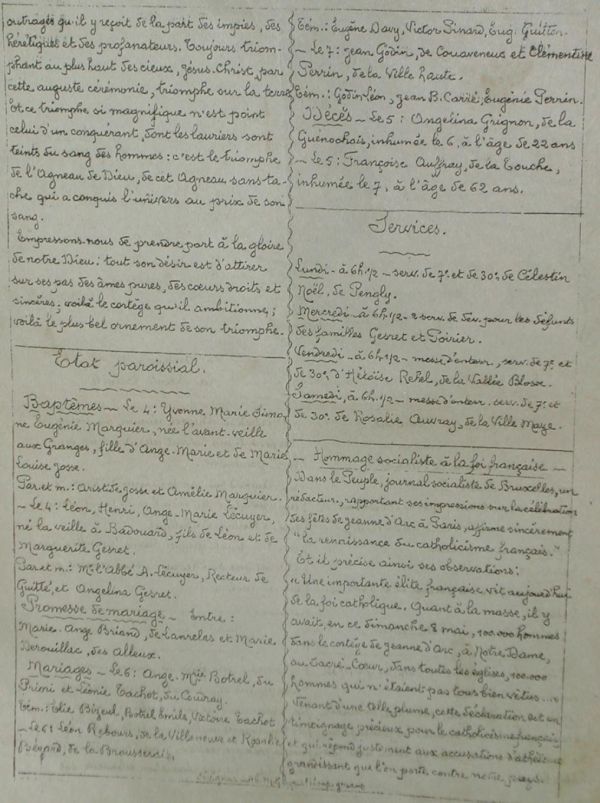 outrages qu'il y reçoit de la part des impies, des
hérétiques et des profanateurs. Toujours triom-
phant au plus haut des cieux, Jésus-Christ, par
cette auguste cérémonie, triomphe sur la terre
Et ce triomphe si magnifique n'est point
celui d'un conquérant, dont les lauriers sont
teints du sang des hommes : c'est le triomphe
de l'Agneau de Dieu, de cet Agneau sans ta-
che qui a conquis l'univers au prix de son
sang.
Empressons-nous de prendre part à la gloire
de notre Dieu : tout son désir est d'attirer
sur ses pas des âmes pures, des cœurs droits et
sincères ; voilà le cortège qu'il ambitionne ;
voilà le plus bel ornement de son triomphe.
Etat paroissial.
Baptêmes - Le 4 : Yvonne Marie Simo
ne Eugénie Marquier, née l'avant-veille
aux Granges, fille d'Ange-Marie et de Marie
Louise Josse.
Par. et m. : Aristide Josse et Amélie Marquier.
- Le 4 : Léon, Henri, Ange-Marie Lécuyer,
né la veille à Badouard, fils de Léon et de
Marguerite Gesret.
Par. et m. : Mr l'Abbé A. Lécuyer, Recteur de
Guitté, et Angelina Gesret.
Promesse de mariage - Entre :
Marie-Ange Briand, de Lanrelas et Marie
Derouillac, des Alleux.
Mariages - Le 6 : Ange-Mie Botrel, du
et Léonie Tachot, du Coudray.
Tém. : Elie Bizeul, Botrel Emile, Victoire Tachot
- Le 6 : Léon Rebours, de la Villeneuve et Rosalie
de la
Tém. : Eugène Davy, Victor Sinard, Eug. Guitton.
- Le 7 : Jean Godin, de Couaveneux et Clémentine
Perrin, de la Ville haute.
Tém. : Godin Léon, Jean B. Eugénie Perrin.
Décès - Le 5 : Angelina Grignon, de la
Guénochais, inhumée le 6, à l'âge de 22 ans
- Le 5 : Françoise Auffray, de la Touche,
inhumée le 7, à l'âge de 62 ans.
Services.
Lundi - à 6h.1/2 - serv. de 7e et de 30e de Célestin
Noël, de Pengly.
Mercredi - à 6h.1/2 - 2 serv. de dev. pour les défunts
des familles Gesret et Poirier.
Vendredi - à 6h.1/2 - messe d'enterr., serv. de 7e et
de 30e, d'Héloïse Rehel, de la Vallée Blosse.
Samedi, à 6h.1/2 - messe d'enterr. serv. de 7e et
de 30e de Rosalie Auvray, de la Ville Maze.
- Hommage socialiste à la foi française -
Dans le Peuple, journal socialiste de Bruxelles, un
rédacteur, rapportant ses impressions sur la célébration
des fêtes de Jeanne d'Arc à Paris, affirme sincèrement
"la renaissance du catholicisme français."
Et il précise ainsi ses observations :
"Une importante élite française vit aujourd'hui
de la foi catholique. Quant à la masse, il y
avait, en ce dimanche 8 mai, 100.000 hommes
dans le cortège de Jeanne d'Arc, à Notre Dame,
au Sacré-Cœur, dans toutes les églises, 100.000
hommes qui n'étaient pas tous bien vêtus...
Venant d'une telle plume, cette déclaration est un
témoignage précieux pour le catholicisme français
et qui répond justement aux accusations d'athéisme
grandissant que l'on porte contre notre pays.